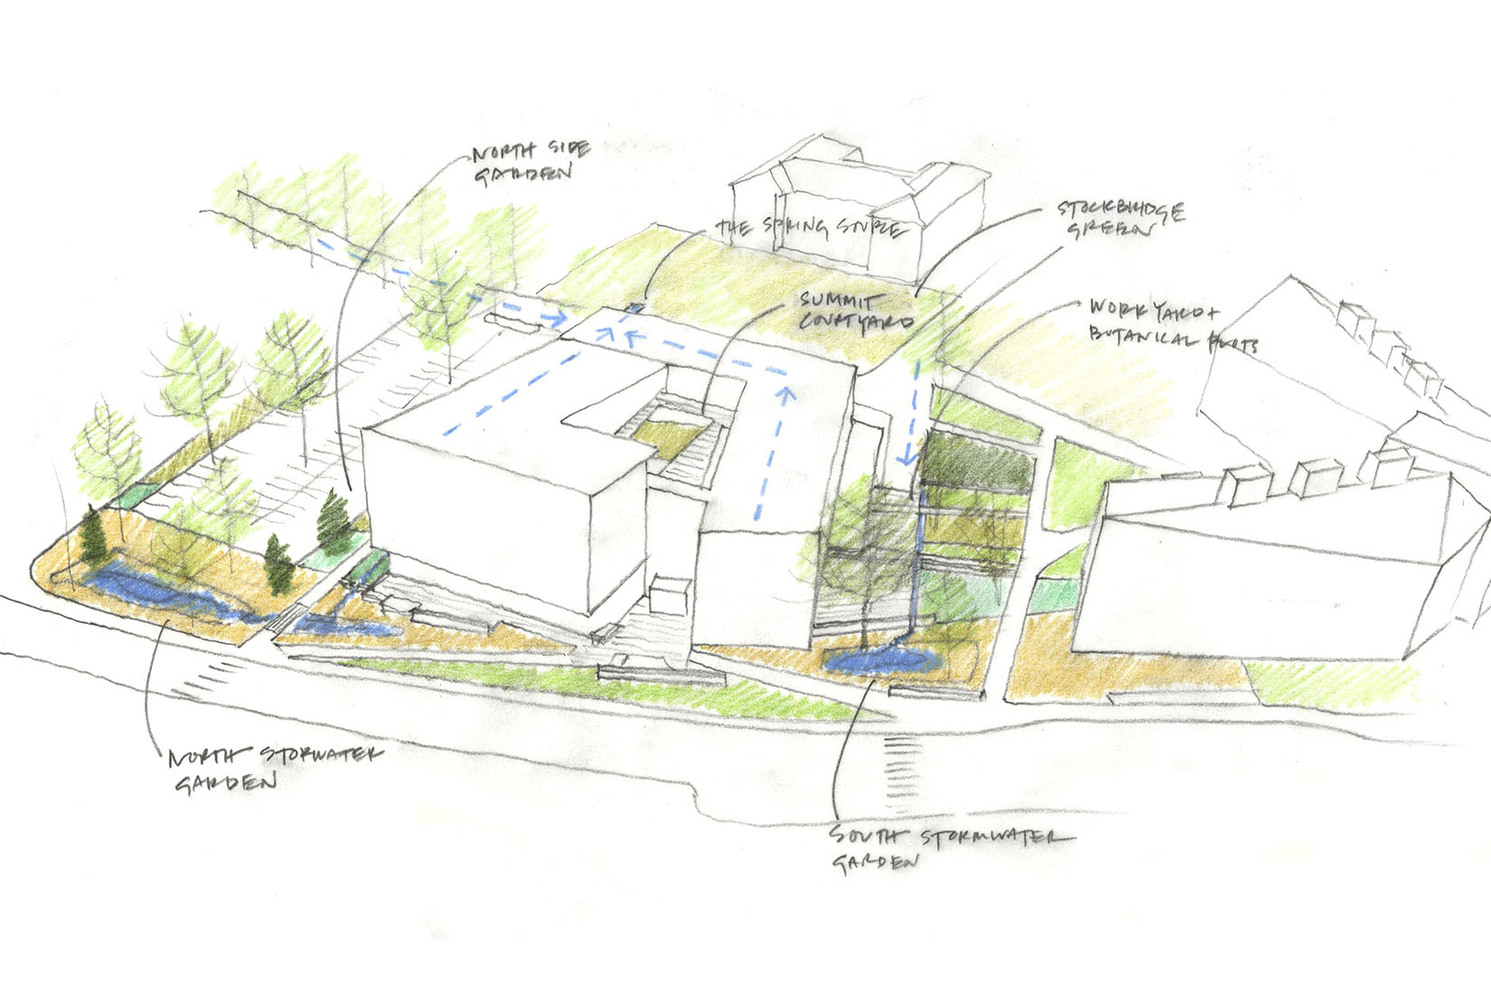 NORTH SIDE
GARDEN
STOCKBRIDGE
GREEN
THE SPRING SOURCE
SUMMIT
COURTYARD
WORKYARD +
BOTANICAL PLOTS
NORTH STORWATER
GARDEN
SOUTH STORMWATER
GARDEN